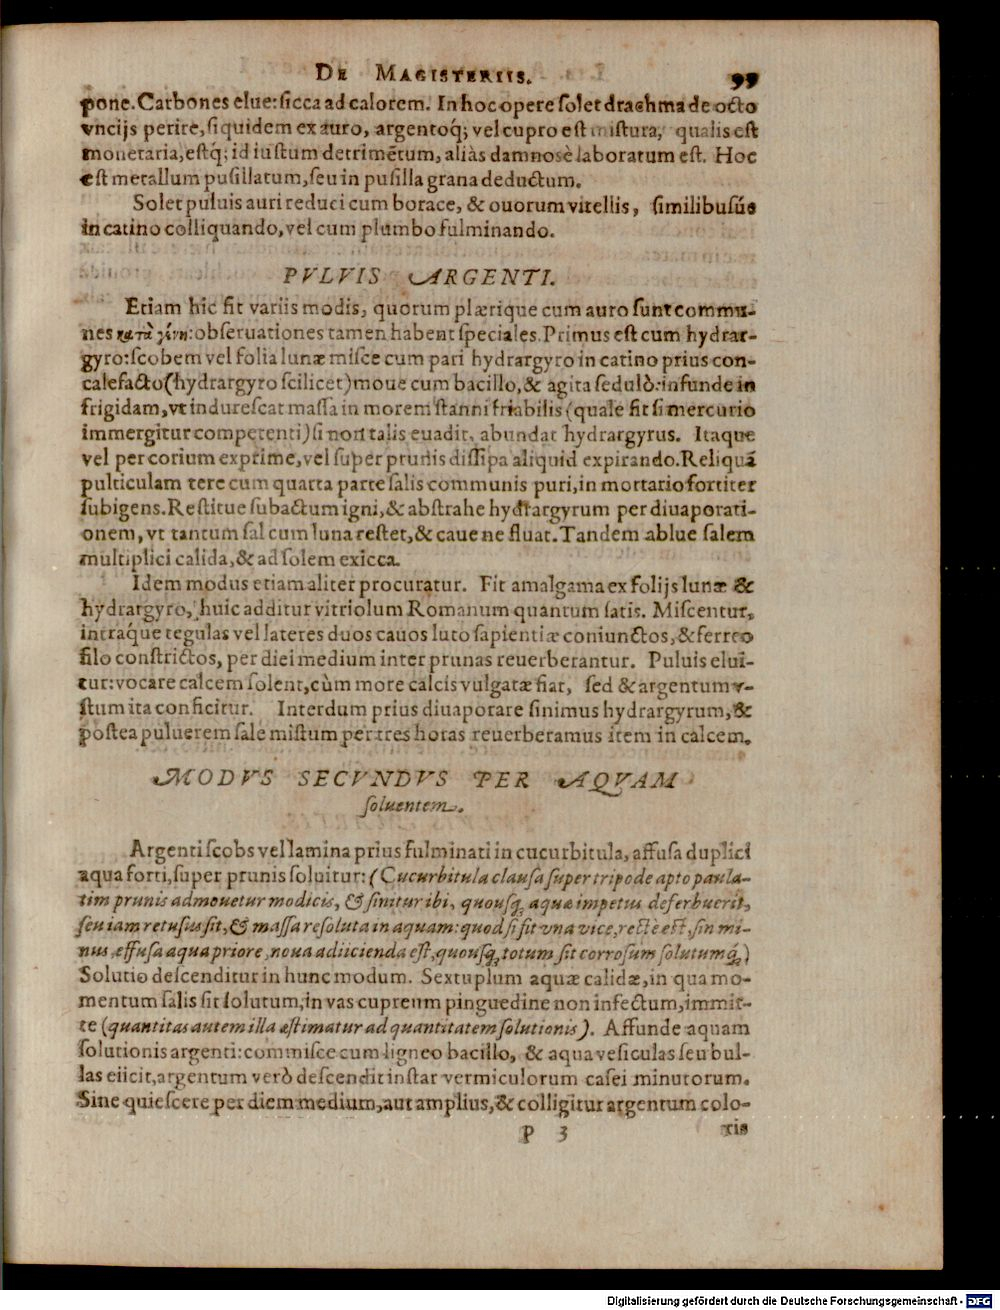 DE MAGISTERIIS. 99
pone. Carbones elue: sicca ad calorem. In hoc opere solet drachma de octo
vncijs perire, siquidem ex auro, argentoq́; vel cupro est mistura, qualis est
monetaria, estq́; id iustum detrimẽtum, aliàs damnosè laboratum est. Hoc
est metallum pusillatum, seu in pusilla grana deductum.
Solet puluis auri reduci cum borace, & ouorum vitellis, similibusúe
in catino colliquando, vel cum plumbo fulminando.
PVLVIS ARGENTI.
Etiam hic fit variis modis, quorum plærique cum auro sunt commu-
nes κατὰ γένη: obseruationes tamen habent speciales. Primus est cum hydrar-
gyro: scobem vel folia lunæ misce cum pari hydrargyro in catino prius con-
calefacto (hydrargyro scilicet) moue cum bacillo, & agita sedulò: infunde in
frigidam, vt indurescat massa in morem stanni friabilis (quale fit si mercurio
immergitur competenti) si non talis euadit, abundat hydrargyrus. Itaque
vel per corium exprime, vel super prunis dissipa aliquid expirando. Reliquã
pulticulam tere cum quarta parte salis communis puri, in mortario fortiter
subigens. Restitue subactum igni, & abstrahe hydrargyrum per diuaporati-
onem, vt tantum sal cum luna restet, & caue ne fluat. Tandem ablue salem
multiplici calida, & ad solem exicca.
Idem modus etiam aliter procuratur. Fit amalgama ex folijs lunæ &
hydrargyro, huic additur vitriolum Romanum quantum satis. Miscentur,
intraq́ue tegulas vel lateres duos cauos luto sapientiæ coniunctos, & ferreo
filo constrictos, per diei medium inter prunas reuerberantur. Puluis elui-
tur: vocare calcem solent, cùm more calcis vulgatæ fiat, sed & argentum v-
stum ita conficitur. Interdum prius diuaporare sinimus hydrargyrum, &
postea puluerem sale mistum per tres horas reuerberamus item in calcem.
MODVS SECVNDVS PER AQVAM
soluentem.
Argenti scobs vel lamina prius fulminati in cucurbitula, affusa duplici
aqua forti, super prunis soluitur: (Cucurbitula clausa super tripode apto paula-
tim prunis admouetur modicis, & sinitur ibi, quousq́; aquæ impetus deferbuerit,
seu iam retusus sit, & massa resoluta in aquam: quod si fit vna vice, rectè est, sin mi-
nus, effusa aqua priore, noua adiicienda est, quousq́; totum sit corrosum solutumq́;)
Solutio descenditur in hunc modum. Sextuplum aquæ calidæ, in qua mo-
mentum salis sit solutum, in vas cupreum pinguedine non infectum, immit-
te (quantitas autem illa æstimatur ad quantitatem solutionis). Affunde aquam
solutionis argenti: commisce cum ligneo bacillo, & aqua vesiculas seu bul-
las eiicit, argentum verò descendit instar vermiculorum casei minutorum.
Sine quiescere per diem medium, aut amplius, & colligitur argentum colo-
P 3 ris
Digitalisierung gefördert durch die Deutsche Forschungsgemeinschaft - DFG